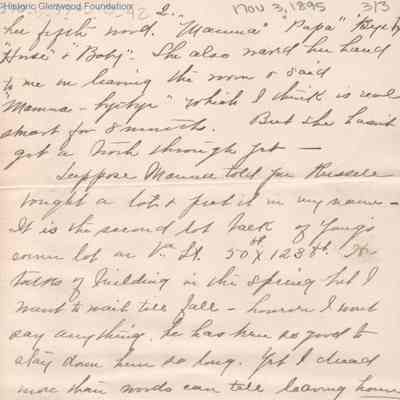 Historic Glenwood Foundation
2.
Nov 3, 1895
3/3
her fifth word. "Mamma" "Papa" "Bye by
"Horse" & "Baby". She also waved her hand
to me in leaving the room & said
"Mamma - bye bye" which I think is real
smart for 8 months. But she hasn't
got a tooth through yet -
Suppose Mamma told you Russell
bought a lot & put it in my name -
It is the second lot back of Young's
corner lot on Va. St. 50 ft X 123 ft. He
talks of building in the Spring but I
want to wait till fall - however I wont
say anything, he has been so good to
stay down here so long. Yet I dread
more than words can tell leaving home